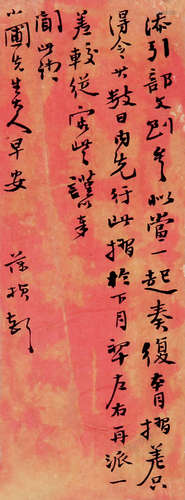 添引部文到矣似當一起奏復本月摺差只
得令其數日内先行此摺於下月初左右再派一
差較從容些謹奉
聞此頌
小圃先生大人早安